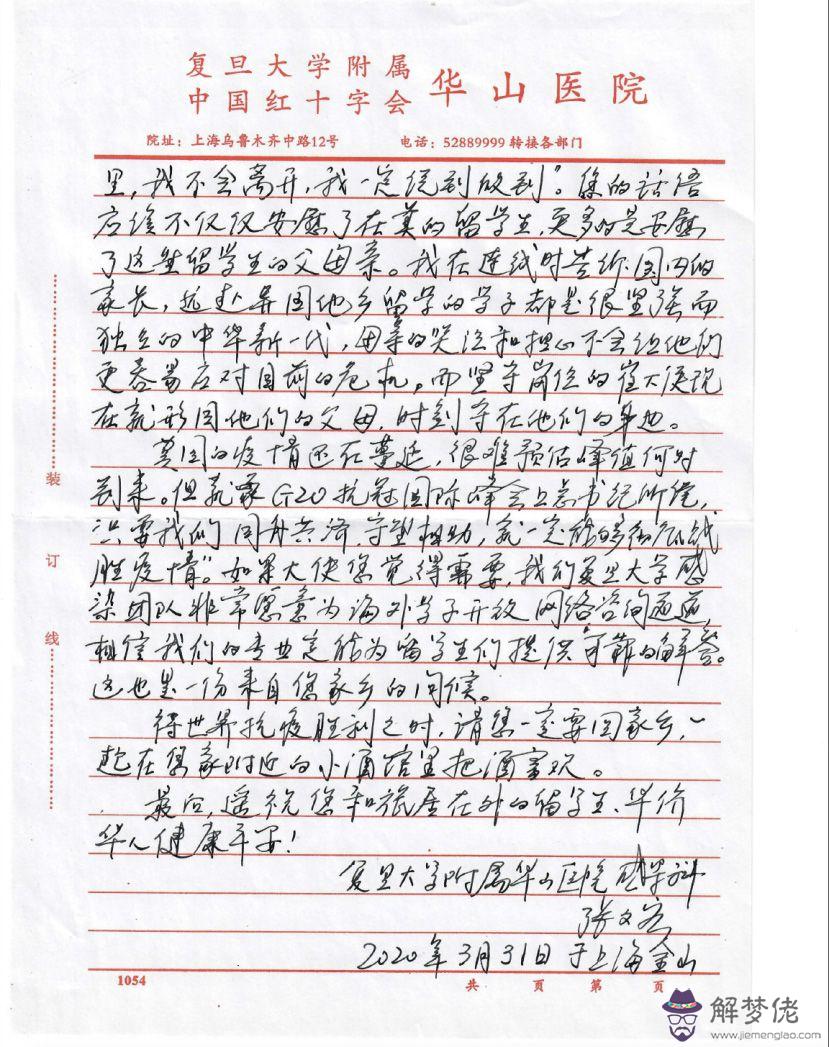 复旦大学附属
中国红十字会 华山医院
院址：上海乌鲁木齐中路12号 电话：52889999 转接各部门
里，我不会离开，我一定说到做到”。您的话语
应该不仅仅安慰了在英的留学生，更多的是安慰
了这些留学生的父母亲。我在连线时告诉国内的
家长，远赴异国他乡留学的学子都是很坚强而
独立的中华新一代，母亲的哭泣和担心不会让他们
更容易应对目前的危机。而坚守岗位的崔大使现
在就形同他们的父母，时刻守在他们的身边。
英国的疫情还在蔓延，很难预估峰值何时
到来。但就象G20抗冠国际峰会上总书记所说，
只要我们同舟共济，守望相助，就一定能够彻底战
胜疫情”。如果大使您觉得需要，我们复旦大学感
染团队非常愿意为海外学子开放网络咨询通道，
相信我们的专业定能为留学生们提供可靠的解答。
这也是一份来自您家乡的问候。
待世界抗疫胜利之时，请您一定要回家乡，一
起在您家附近的小酒馆里把酒言欢。
最后，遥祝您和旅居在外的留学生、华侨
华人健康平安！
复旦大学附属华山医院感染科
张文宏
2020年3月31日于上海金山
1054
共 页 第 页
装
订
线
解梦佬
www.jiemenglao.com